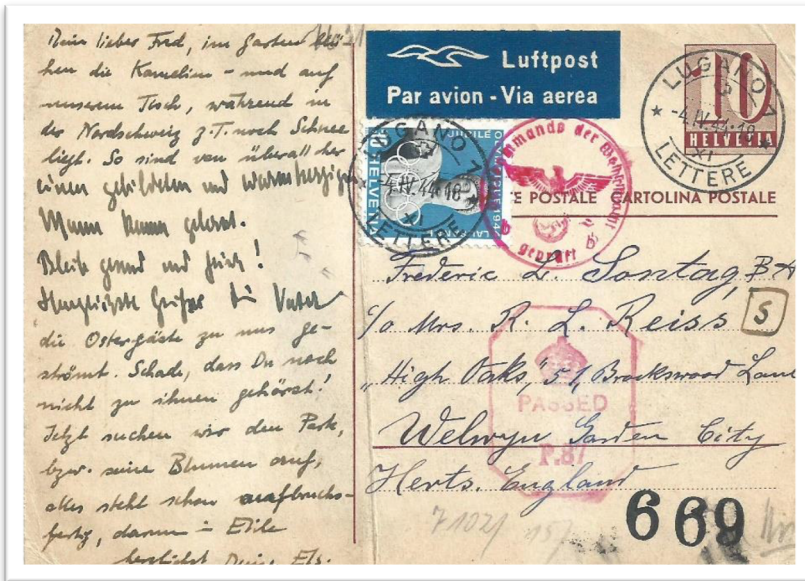 Mein lieber Fred, im Garten blü-
hen die Kamelien - und auf
unserem Tisch, während in
der Nordschweiz z.T. noch Schnee
liegt. So sind von überall her
einen gebildeten und warmherzigen
Mann kennen gelernt.
Bleib gesund und frisch!
Herzlichste Grüsse Dein Vater
die Ostergäste zu uns ge-
strömt. Schade, dass Du noch
nicht zu ihnen gehörst!
Jetzt suchen wir den Park,
bzw. seine Blumen auf,
alles steht schon aufbruchs-
fertig, darum in Eile
herzlichst Deine Els.
Luftpost
Par avion - Via aerea
10
HELVETIA
LUGANO 7
-4.IV.44.18
XI
LETTERE
LUGANO 7
-4.IV.44.18
XI
LETTERE
JUBILÉ OLYMPIQUE 1944
HELVETIA
der Wehrmacht
geprüft
b
POSTALE CARTOLINA POSTALE
Frederic L. Sontag,
c/o Mrs. R. L. Reiss
S
"High Oaks," 51, Brockswood Lane
PASSED
P.87
Welwyn Garden City
Herts. England
7102/
669